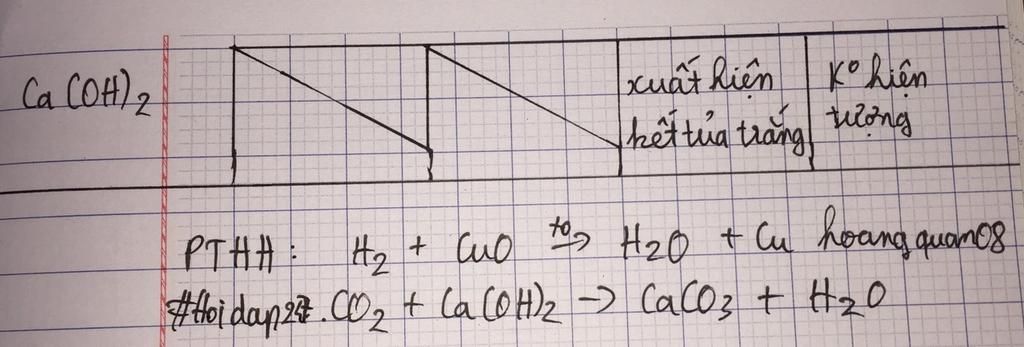 Ca(OH)2
xuất hiện
kết tủa trắng
Kº hiện
tượng
PTHH: H2 + CuO to→ H2O + Cu hoangquan08
#Hoidap247. CO2 + Ca(OH)2 → CaCO3 + H2O